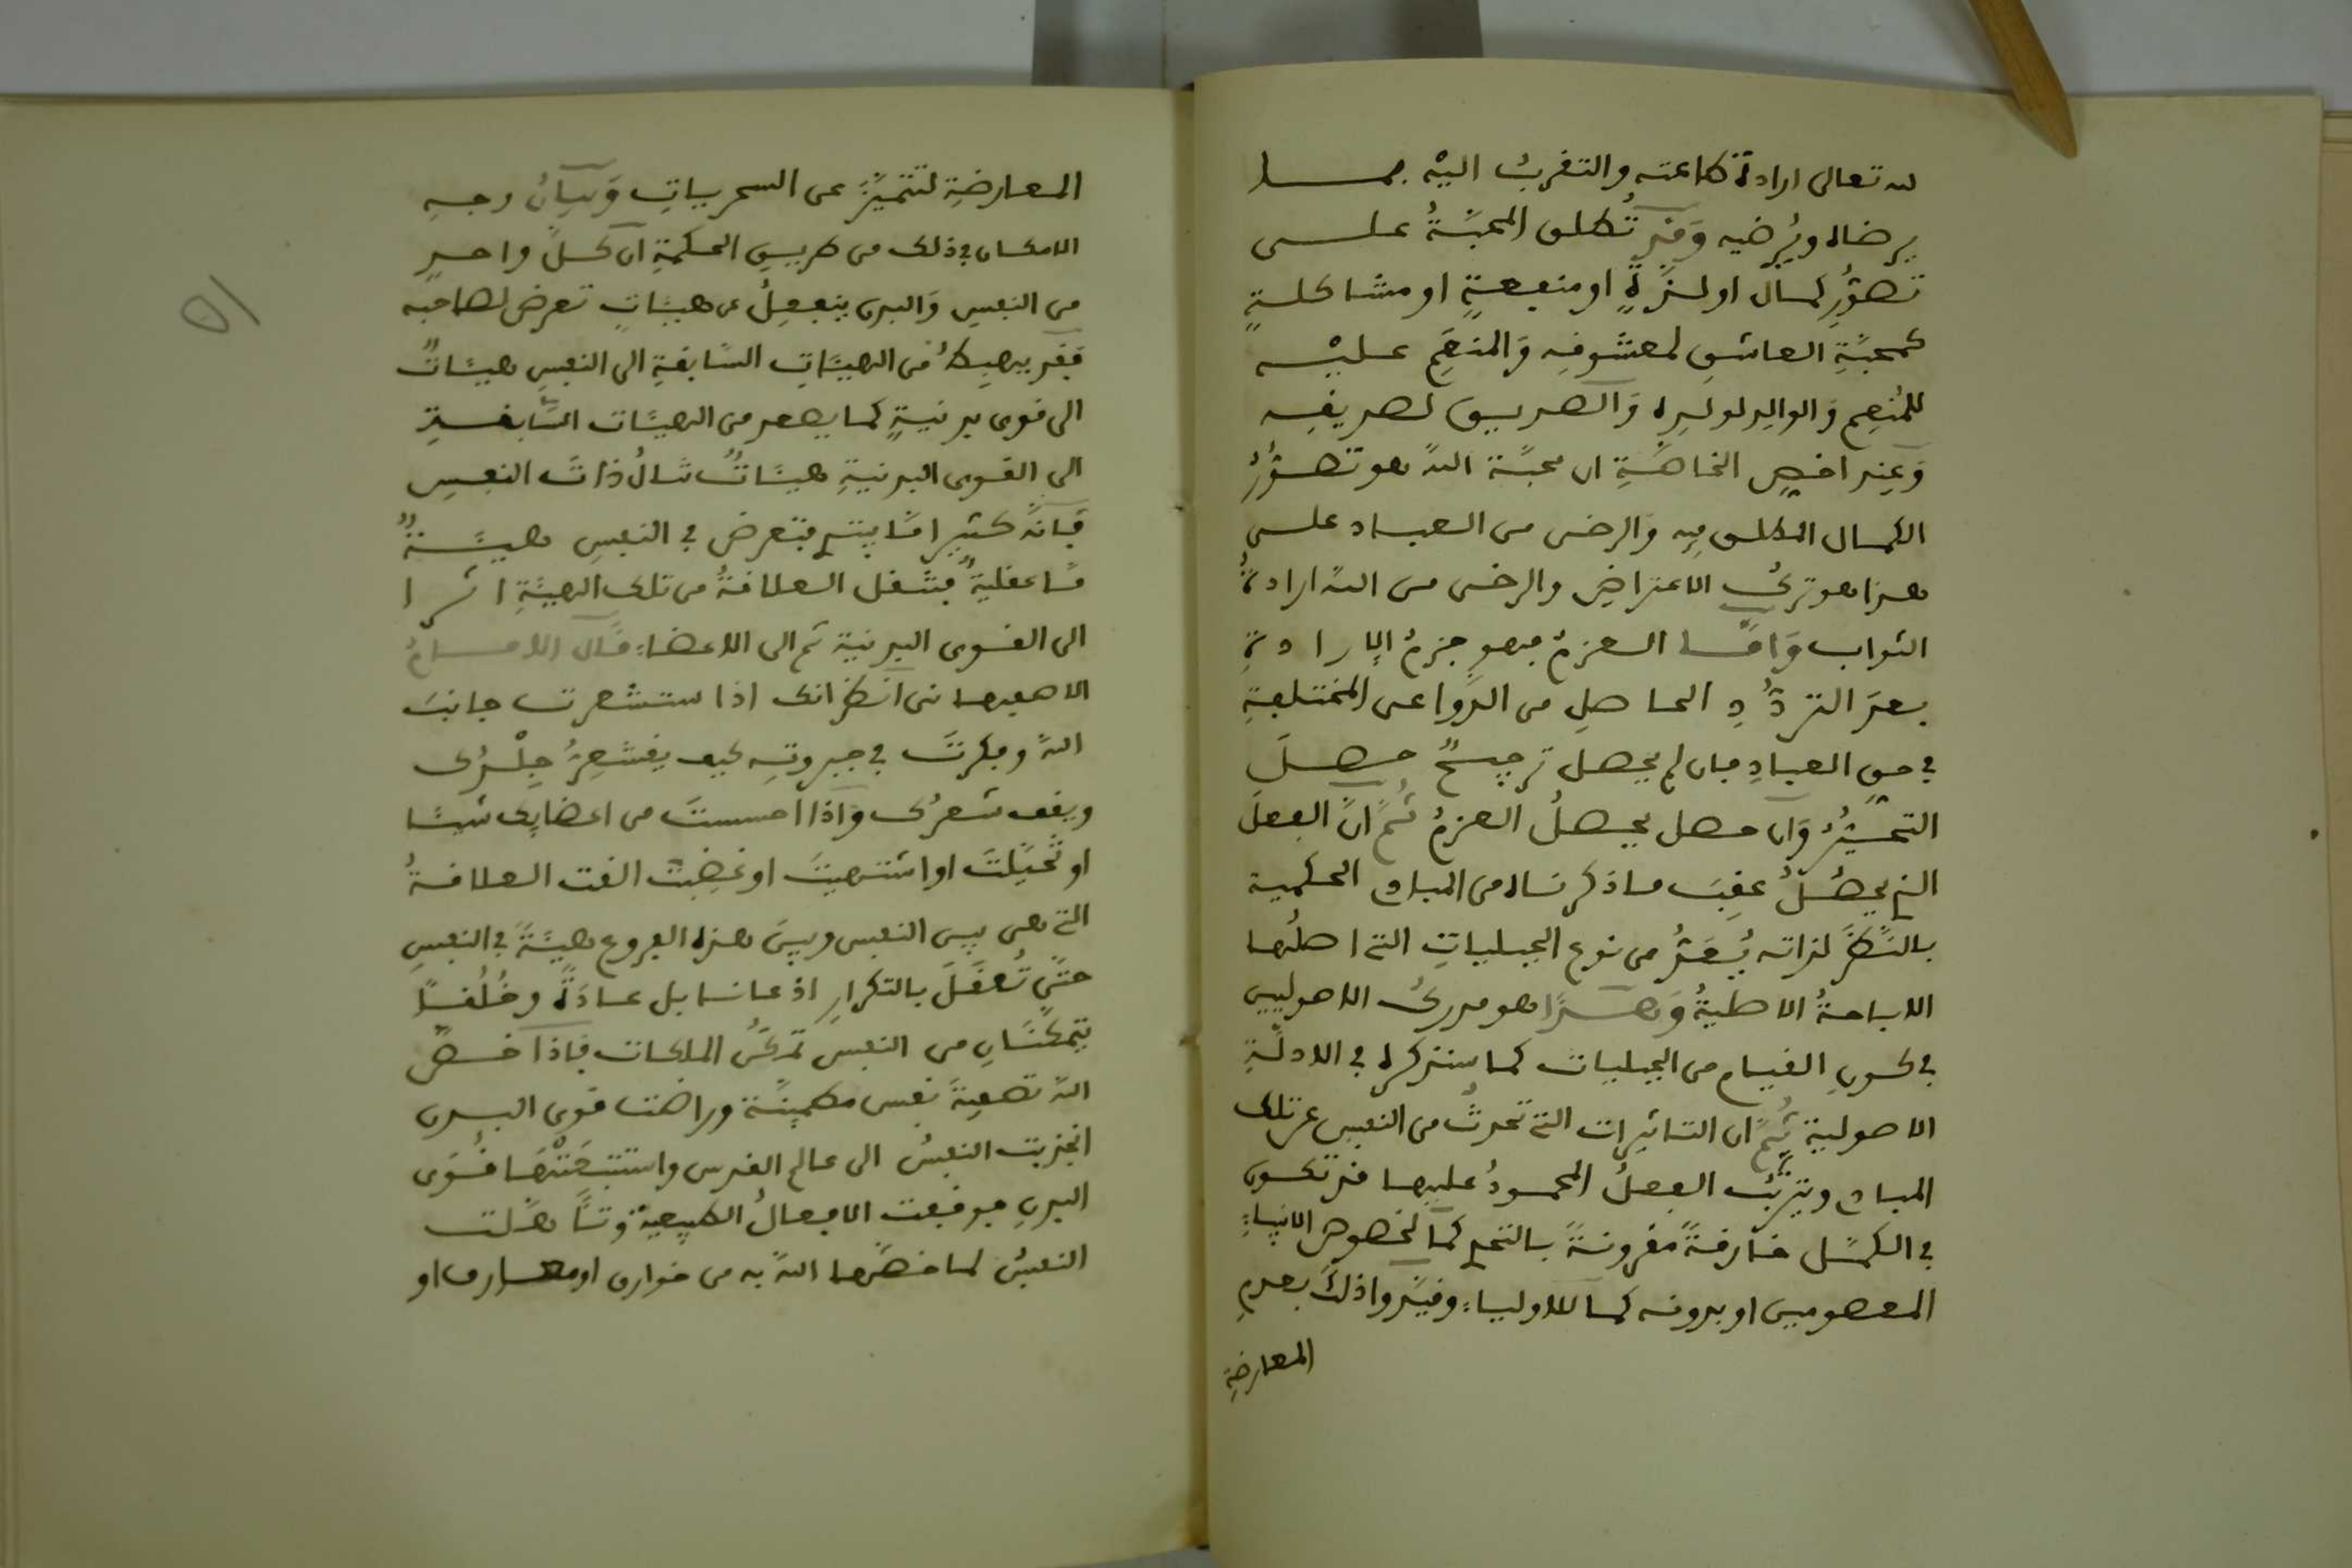 لله تعالى ارادة طاعته والتقرب اليه بما
يرضاه ويُرضيه وَقد تُطلق المحبَّةُ على
تصوُّرِ كمال او لذَّةٍ او منفعةٍ او مشاكلةٍ
كمحبَّةِ العاشقِ لمعشوقِه وَالمنعَمِ عليْه
للمُنعِم وَالوالِدِ لولَدِه وَالصديق لصديقِه
وَعِند اخصِّ الخاصَّةِ ان محبَّة اللهِ هو تصوُّرُ
الكمال المطلق فيه وَالرضى من العباد على
هذا هو تركُ الاعتراضِ والرضى من الله ارادةُ
الثواب وَامَّا العزمُ فهو جزمُ الإرادةِ
بعدَ التردُّدِ الحاصلِ من الدَّواعى المختلفةِ
في حقِ العبادِ فان لم يحصل ترجيحٌ حصلَ
التحيُّرُ وَان حصل يحصلُ العزمُ ثُمَّ انَّ الفعلَ
الذي يحصُلُ عقِبَ ماذكرناه من المبادي الحكمية
بالنَّظرِ لذاته يُعَدُّ من نوع الجبليات التي اصلُها
الاباحةُ الاصليةُ وَهذا هو مدركُ الاصوليين
في كونِ القيام من الجبليات كما سنذكره في الادلَّةِ
الاصولية ثُمَّ ان التاثيرات التي تحدثُ من النفسِ عند تلك
المبادي ويترتَّبُ الفعلُ المحمودُ عليها قد تكون
في الكمَّل خارقةً مقرونةً بالتحدي كما لخصوص الانبياءِ
المعصومين او بدونه كما للاولياءِ وقيَّدوا ذلكَ بعدمِ
المعارضةِ
المعارضةِ لتتميَّزَ عن السحرياتِ وَبيانُ وجهِ
الامكان في ذلك من طريقِ الحكمةِ ان كلَّ واحدٍ
من النفسِ وَالبدن ينفعلُ عن هيئاتٍ تعرض لصاحبه
فقد يهبِطُ من الهيئاتِ السَّابقةِ الى النفسِ هيئاتٌ
الى قوى بدنيةٍ كما يصعد من الهيئات السَّابقةِ
الى القوى البدنيةِ هيئاتٌ تنالُ ذاتَ النفسِ
فَانَّه كثيرا مَّا يبتدي فتعرض في النفسِ هيئةٌ
مَّا عقليةٌ فتنقل العلاقةُ من تلك الهيئةِ اثرا
الى القوى البدنيةِ ثم الى الاعضاءِ قالَ الامامُ
الاصبهانى انظر انك اذا استشعرت جانبَ
اللهِ وفكرتَ في جبروتِه كيف يقشعِرُّ جِلْدُك
ويقف شعرُك وَاذا احسستَ من اعضايك شيئا
او تخيَّلتَ او اشتهيتَ او غضِبتَ القت العلاقةُ
التي هى بين النفس وبينَ هذه الفروع هيئةً في النفسِ
حتى تُعقَلَ بالتكرارِ اذعانا بل عادَةً وخُلُقًا
يتمكَّنان من النفس تمكُّنَ الملكات فاذا خصَّ
اللهُ تصفيةَ نفس مطمئنَّة وراضت قوى البدن
انجذبت النفسُ الى عالم القدس واستتبعَتْها قُوَى
البدن فوقفت الافعالُ الطبيعيةُ وتأهَّلت
النفسُ لما خصَّها اللهُ به من خوارق او معارف او